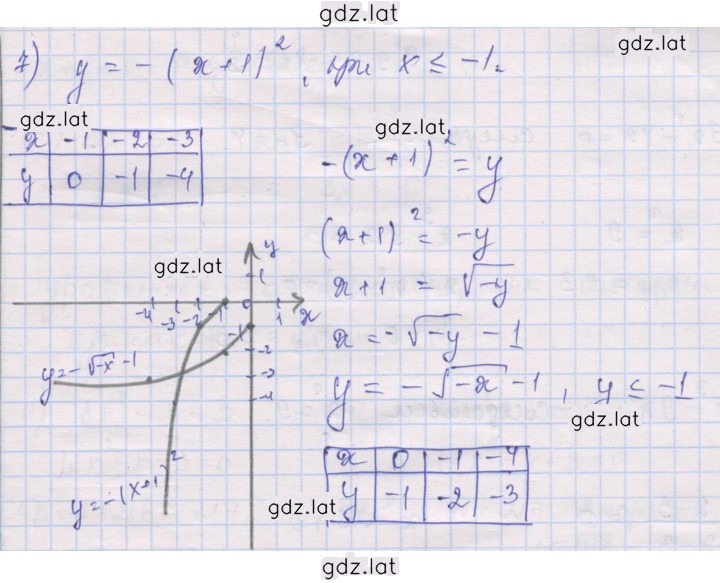 gdz.lat
7) y = -(x+1)², при x ≤ -1.
gdz.lat
gdz.lat
x -1 -2 -3
y 0 -1 -4
gdz.lat
-(x+1)² = y
(x+1)² = -y
x+1 = √-y
x = -√-y - 1
y = -√-x - 1, y ≤ -1
gdz.lat
x 0 -1 -4
y -1 -2 -3
gdz.lat
y
1
-4 -3 -2 -1 0 1 x
-1
-2
-3
-4
gdz.lat
y=-√-x-1
y=-(x+1)²
gdz.lat